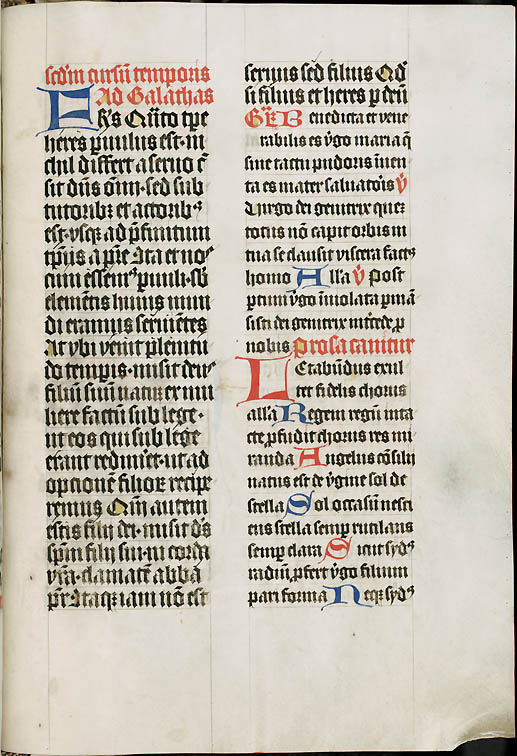 scd'm cursū temporis
Ad Galathas
FR̄s Qūto tp̄e
heres p̄uulus est · ni
chil differt a seruo cū
sit dn̄s oīm · sed sub
tutoribꝫ et actoribꝰ
est · vsqꝫ ad p̄finitum
tp̄us a pr̄e Ita et nos
cum essemꝰ p̄uuli · sb̄
elemētis huius mun
di eramus seruiētes
At vbi venit plenitu
do temp̄is · misit deus
filiū suū natū ex mu
liere factū sub lege ·
ut eos qui sub lege
erant redimēt · ut ad
optionē filioꝝ recipe
remus Qm̄ autem
estis filij dei · misit d̄s
sp̄m filij sui · in corda
vr̄a · clamatē abba
pr̄ Itaqꝫ iam nō est
seruus sed filius Qd'
si filius et heres p deū
Gr̄ Benedicta et vene
rabilis es v̓go maria q̄
sine tactu pudoris inuen
ta es mater saluatoris v̓
Virgo dei genitrix quez
totus nō capit orbis in
tua se clausit viscera factꝰ
homo Alla v̓ Post
partum v̓go īuiolata p̄mā
sisti dei genitrix īt̓cede p̄
nobis Prosa canitur
LEtabūdus exul
tet fidelis chorus
alla Regem regū inta
cte p̄fudit chorus res mi
randa Angelus cōsilij
natus est de v̓gine sol de
stella Sol occasū nesci
ens stella semp̄ rutilans
semp̄ clara Sicut sydꝰ
radiū p̄fert v̓go filium
pari forma Neqꝫ sydꝰ